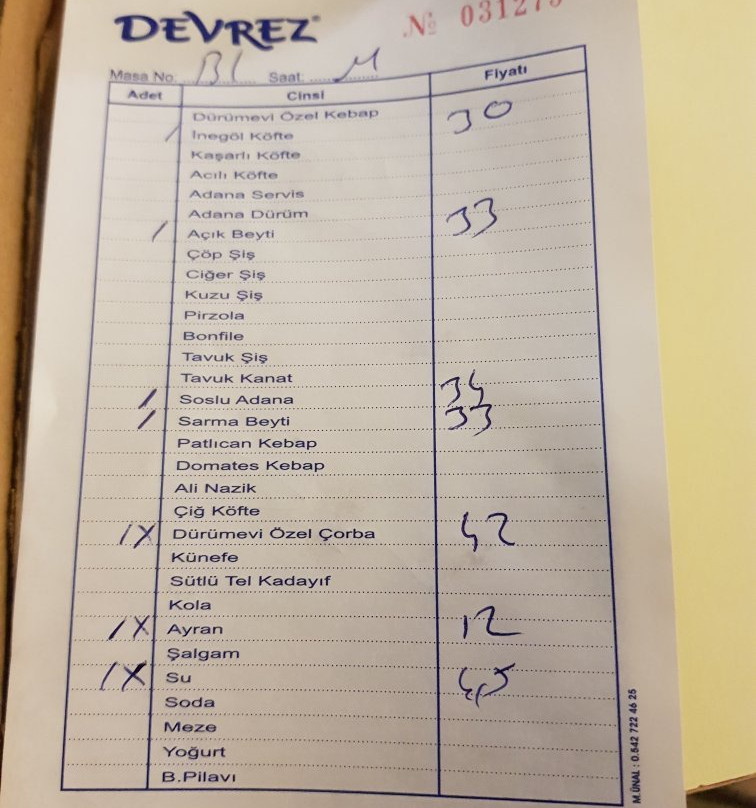 DEVREZ
№ 031275
Masa No: B1 Saat: M
Adet Cinsi Fiyatı
Dürümevi Özel Kebap
/ İnegöl Köfte 30
Kaşarlı Köfte
Acılı Köfte
Adana Servis
Adana Dürüm
/ Açık Beyti 33
Çöp Şiş
Ciğer Şiş
Kuzu Şiş
Pirzola
Bonfile
Tavuk Şiş
Tavuk Kanat
/ Soslu Adana 34
/ Sarma Beyti 33
Patlıcan Kebap
Domates Kebap
Ali Nazik
Çiğ Köfte
/X Dürümevi Özel Çorba 42
Künefe
Sütlü Tel Kadayıf
Kola
/X Ayran 12
Şalgam
/X Su 4,5
Soda
Meze
Yoğurt
B.Pilavı
M.ÜNAL : 0.542 722 46 25